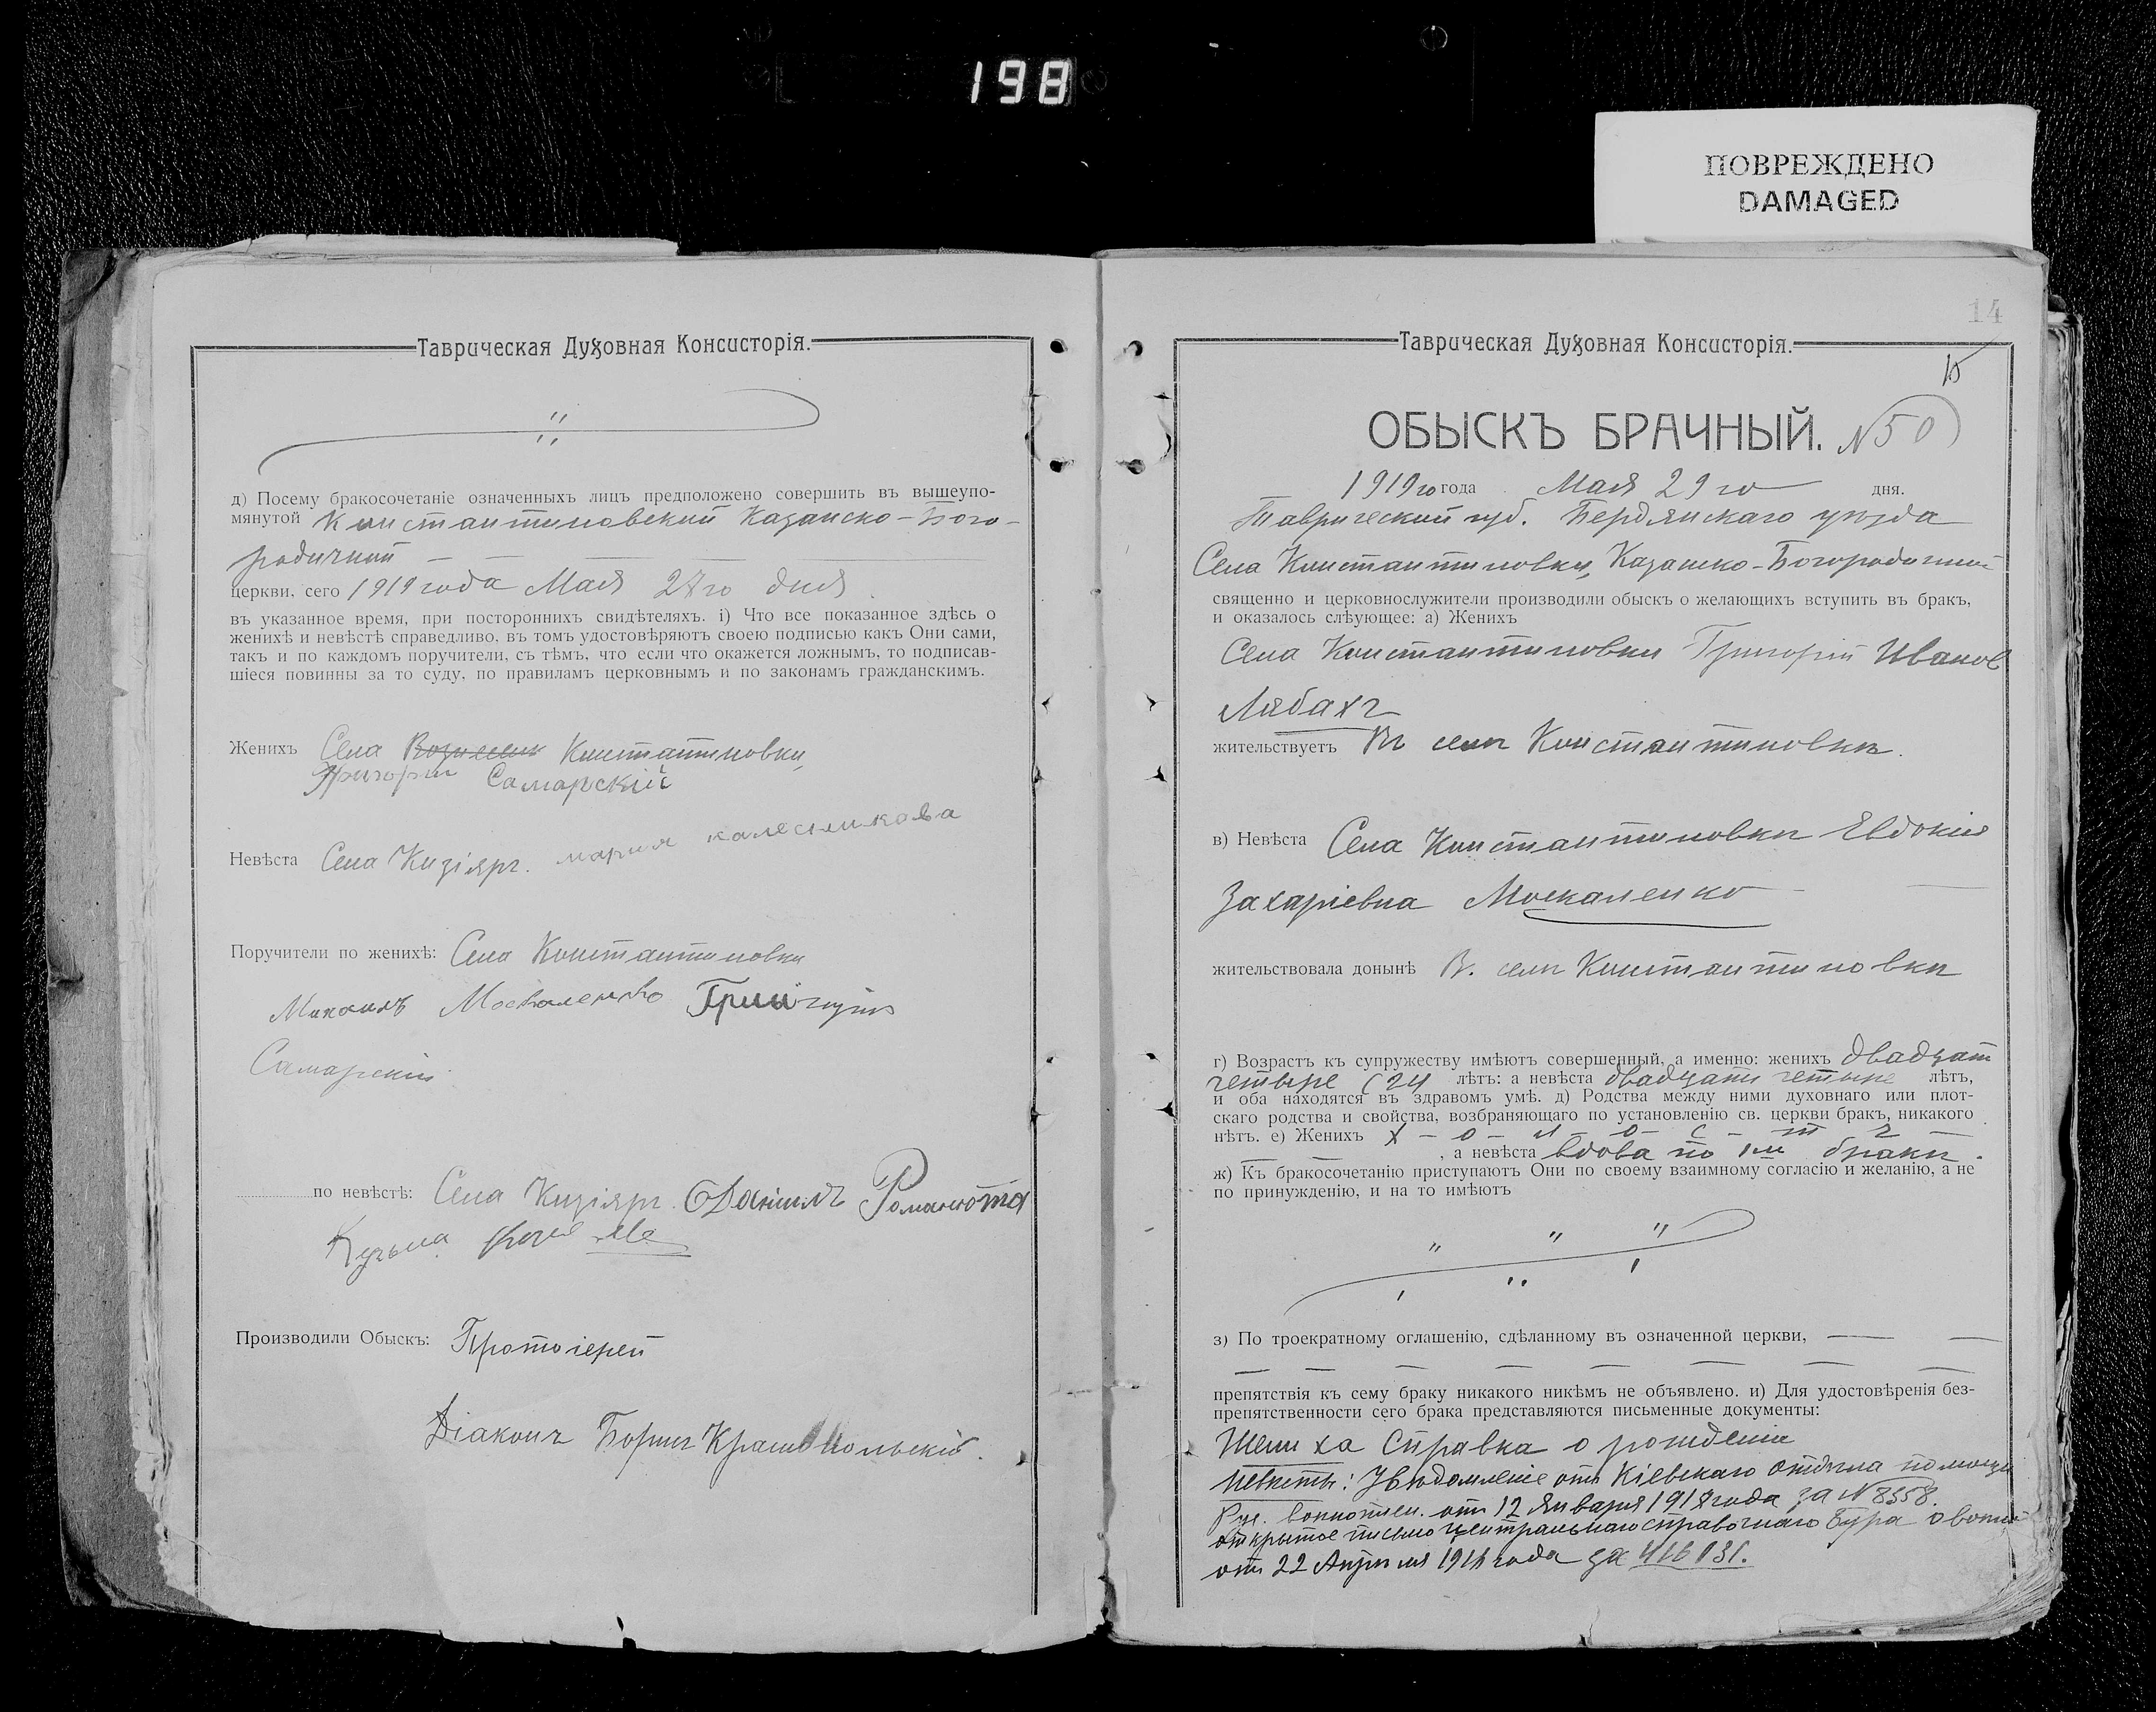 198
ПОВРЕЖДЕНО
DAMAGED
Таврическая Духовная Консисторія.
д) Посему бракосочетаніе означенныхъ лицъ предположено совершить въ вышеупо-
мянутой Константиновский Казанско-Бого-
родичной
церкви, сего 1919 года Мая 27го дня
въ указанное время, при постороннихъ свидѣтеляхъ. і) Что все показанное здѣсь о
женихѣ и невѣстѣ справедливо, въ томъ удостовѣряютъ своею подписью какъ Они сами,
такъ и по каждомъ поручители, съ тѣмъ, что если что окажется ложнымъ, то подписав-
шіеся повинны за то суду, по правиламъ церковнымъ и по законамъ гражданскимъ.
Женихъ Села Константиновки,
Григорій Самарскій
Невѣста Села Кизіяръ. мария калесникова
Поручители по женихѣ: Села Константиновки
Михаилъ Москаленко
Самарский
по невѣстѣ: Села Кизіяръ Даниилъ
Кузьма
Производили Обыскъ: Протоіерей
Діаконъ Борисъ
14
Таврическая Духовная Консисторія.
ОБЫСКЪ БРАЧНЫЙ. N 50
1919 го года Мая 29 го дня.
Таврической губ. Бердянскаго уѣзда
Села Константиновки, Казанско-Богородичной
священно и церковнослужители производили обыскъ о желающихъ вступить въ бракъ,
и оказалось слѣующее: а) Женихъ
Села Константиновки Григорій Иванов
Лябахъ
жительствуетъ Въ селѣ Константиновкѣ.
в) Невѣста Села Константиновки Евдокия
Захаріевна Москаленко
жительствовала донынѣ В. селѣ Константиновкѣ
г) Возрастъ къ супружеству имѣютъ совершенный, а именно: женихъ двадцат
четыре (24 лѣтъ: а невѣста двадцати четыре лѣтъ,
и оба находятся въ здравомъ умѣ. д) Родства между ними духовнаго или плот-
скаго родства и свойства, возбраняющаго по установленію св. церкви бракъ, никакого
нѣтъ. е) Женихъ х - о - л - о - с - т - ъ
, а невѣста вдова по 1м бракѣ.
ж) Къ бракосочетанію приступаютъ Они по своему взаимному согласію и желанію, а не
по принужденію, и на то имѣютъ
з) По троекратному оглашенію, сдѣланному въ означенной церкви,
препятствія къ сему браку никакого никѣмъ не объявлено. и) Для удостовѣренія без-
препятственности сего брака представляются письменные документы:
Жениха Справка о рожденіи
Невѣсты: Увѣдомленіе отъ Кіевскаго отдѣла помощи
Рус. военноплен. отъ 12 Января 1918 года за N 8558.
открытое письмо центральнаго справочнаго Бура о воен
отъ 22 Апрѣля года за